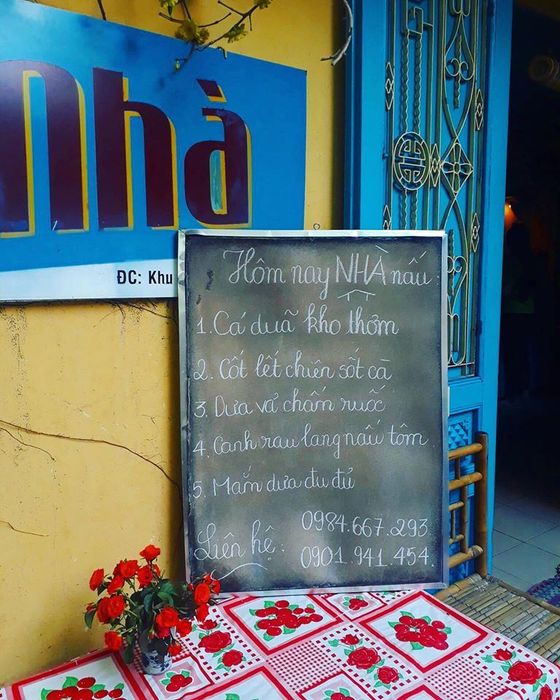 Nhà
ĐC: Khu
Hôm nay NHÀ nấu:
1. Cá duã kho thơm
2. Cốt lết chiên sốt cà
3. Dưa vả chấm ruốc
4. Canh rau lang nấu tôm
5. Mắm dưa đu đủ
Liên hệ: 0984.667.293
0901.941.454.